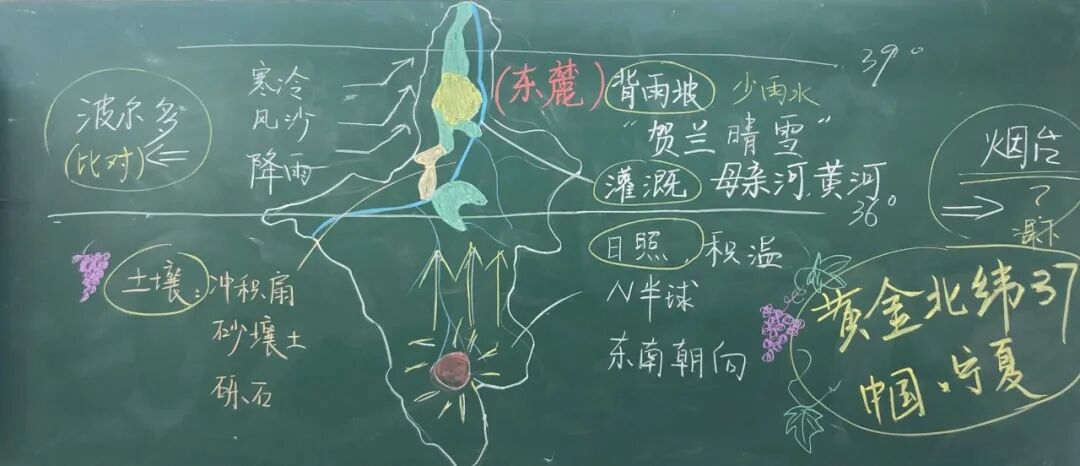 波尔多
(比对)
寒冷
风沙
降雨
(东麓)
背雨坡
少雨水
"贺兰晴雪"
灌溉
母亲河.黄河
39°
36°
烟台
土壤:
冲积扇
砂壤土
砾石
日照.积温
N半球
东南朝向
黄金北纬37
中国·宁夏